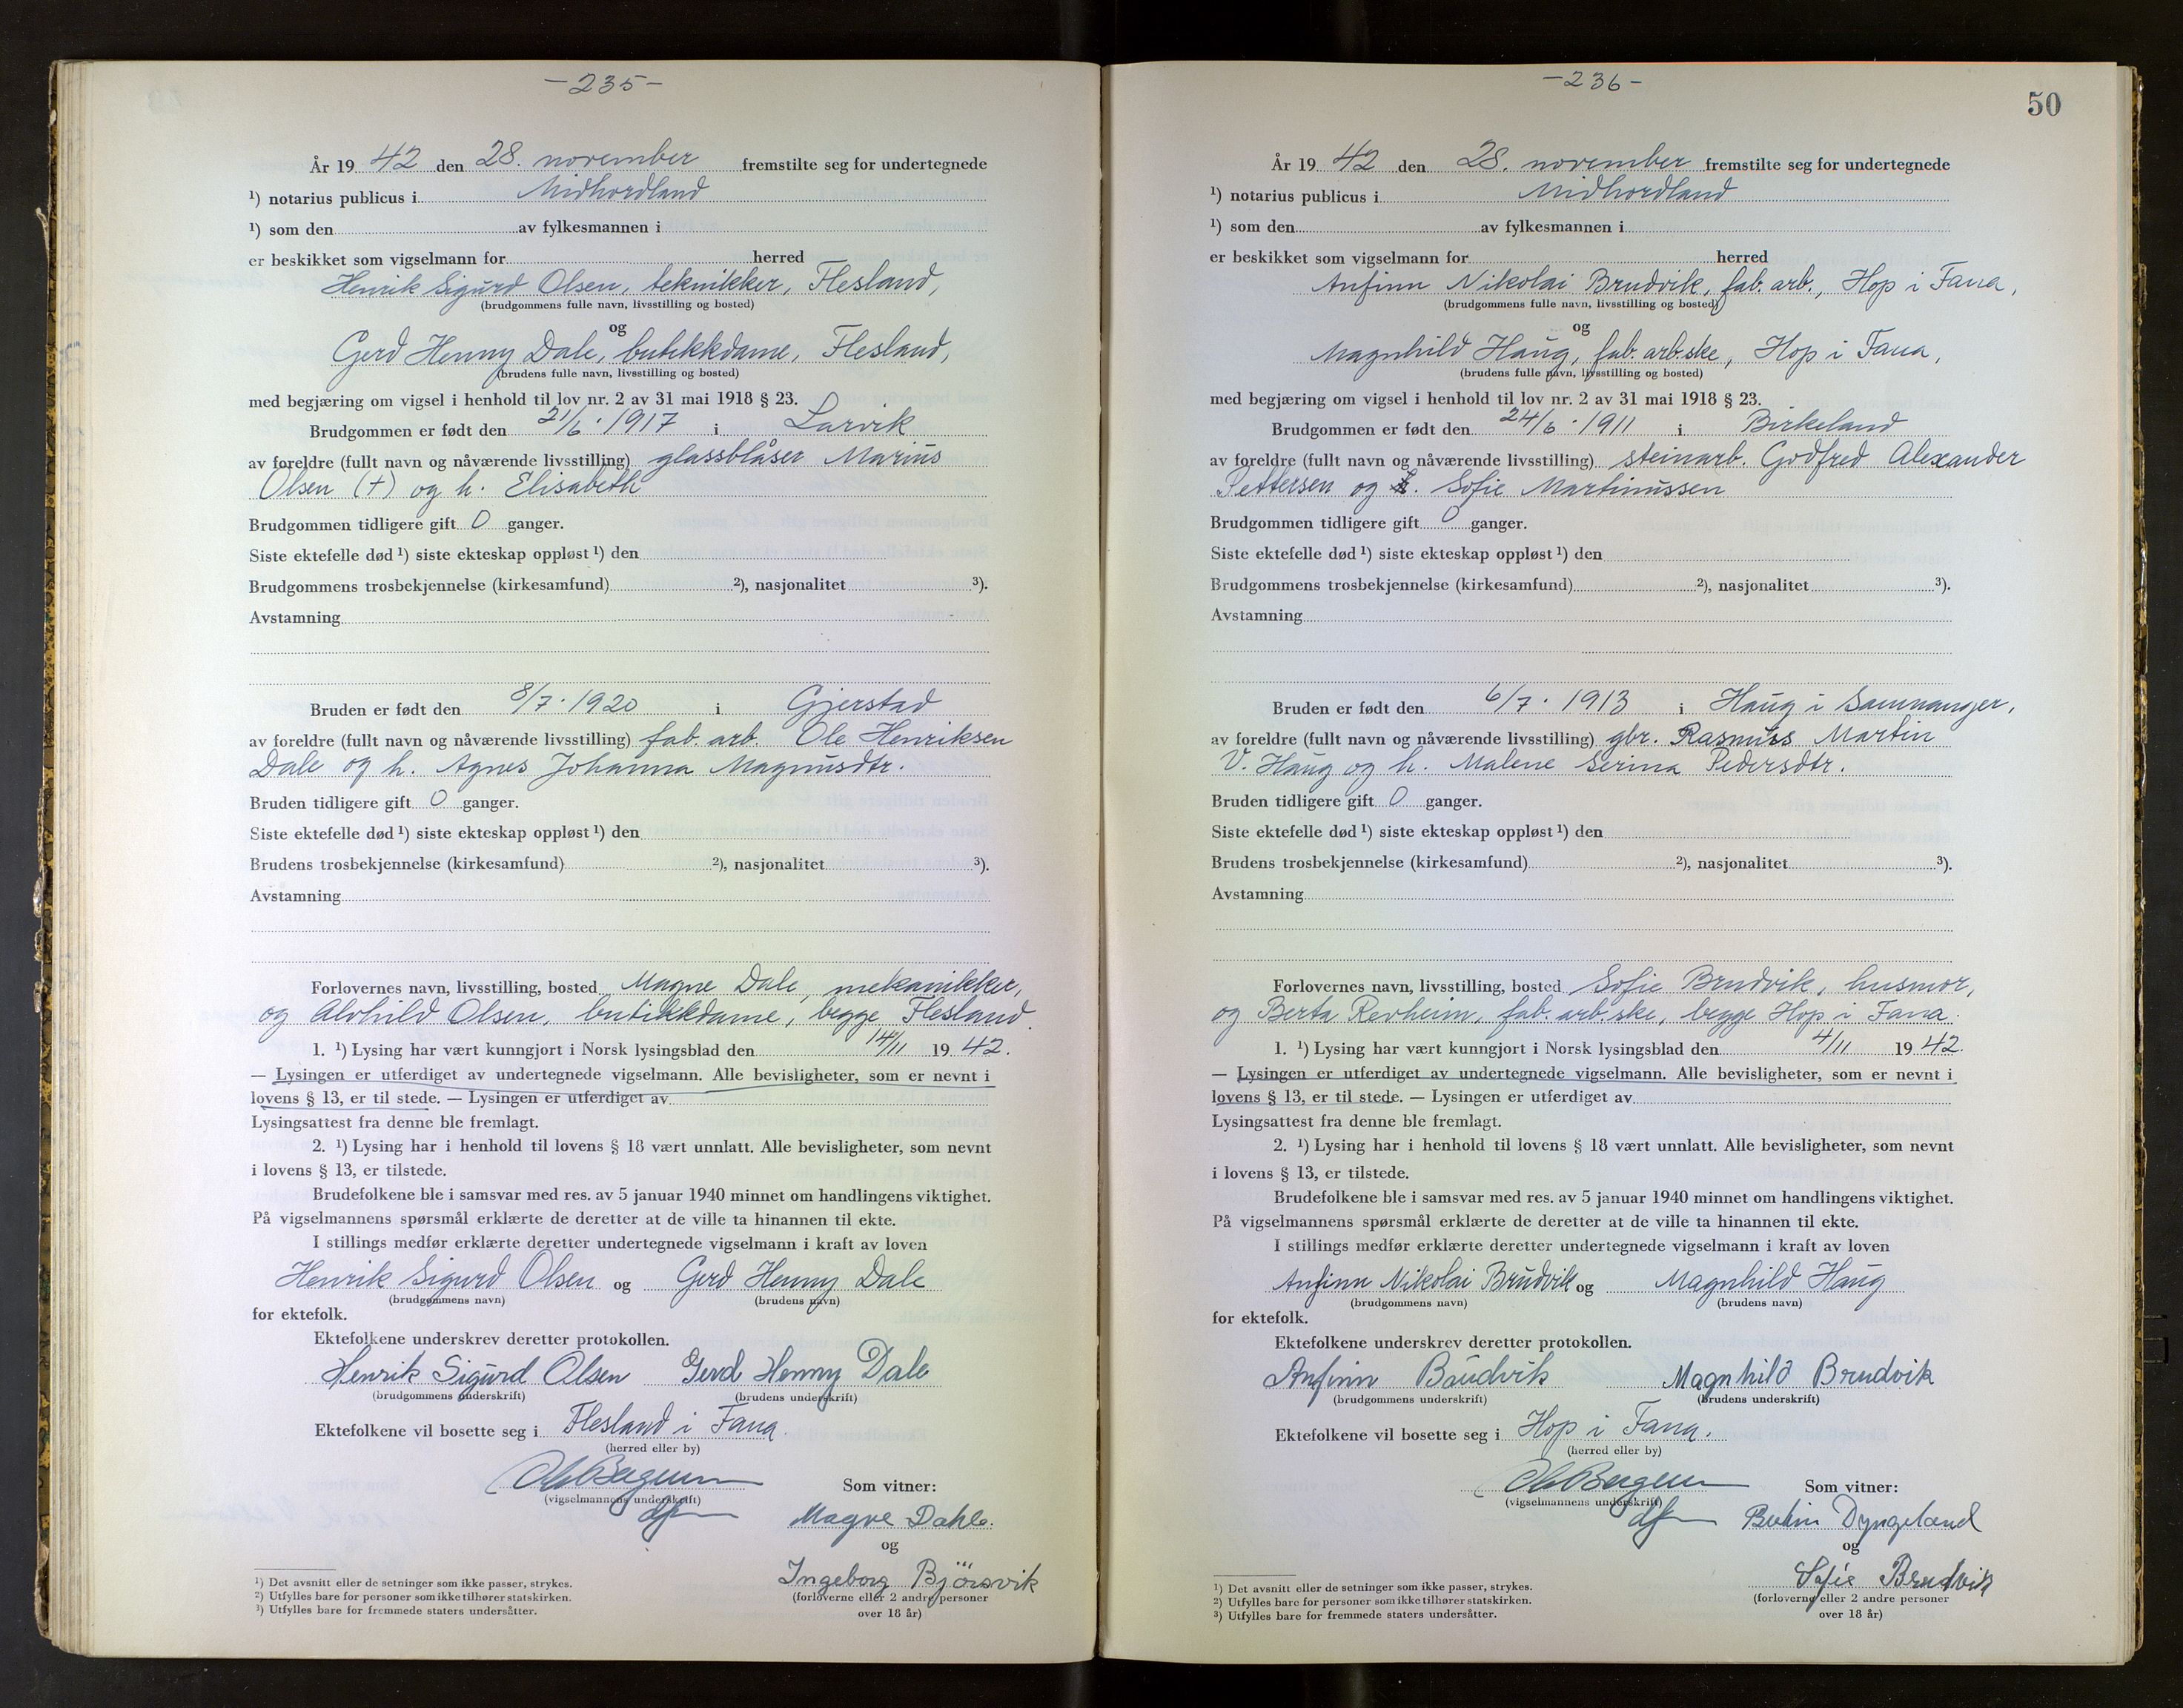 -235-
År 19 42 den 28. november fremstilte seg for undertegnede
¹) notarius publicus i Midhordland
¹) som den av fylkesmannen i
er beskikket som vigselmann for herred
Henrik Sigurd Olsen, teknikker, Flesland,
(brudgommens fulle navn, livsstilling og bosted)
og
Gerd Henny Dale, butikkdame, Flesland,
(brudens fulle navn, livsstilling og bosted)
med begjæring om vigsel i henhold til lov nr. 2 av 31 mai 1918 § 23.
Brudgommen er født den 21/6. 1917 i Larvik
av foreldre (fullt navn og nåværende livsstilling) glassblåser Marius
Olsen (+) og h. Elisabeth
Brudgommen tidligere gift 0 ganger.
Siste ektefelle død ¹) siste ekteskap oppløst ¹) den
Brudgommens trosbekjennelse (kirkesamfund) ²), nasjonalitet ³).
Avstamning
Bruden er født den 8/7. 1920 i Gjerstad
av foreldre (fullt navn og nåværende livsstilling) fab. arb. Ole Henriksen
Dale og h. Agnes Johanna Magnusdtr.
Bruden tidligere gift 0 ganger.
Siste ektefelle død ¹) siste ekteskap oppløst ¹) den
Brudens trosbekjennelse (kirkesamfund) ²), nasjonalitet ³).
Avstamning
Forlovernes navn, livsstilling, bosted Magne Dale, mekanikker,
og Alvhild Olsen, butikkdame, begge Flesland.
1. ¹) Lysing har vært kunngjort i Norsk lysingsblad den 14/11 19 42.
— Lysingen er utferdiget av undertegnede vigselmann. Alle bevisligheter, som er nevnt i
lovens § 13, er til stede. — Lysingen er utferdiget av
Lysingsattest fra denne ble fremlagt.
2. ¹) Lysing har i henhold til lovens § 18 vært unnlatt. Alle bevisligheter, som nevnt
i lovens § 13, er tilstede.
Brudefolkene ble i samsvar med res. av 5 januar 1940 minnet om handlingens viktighet.
På vigselmannens spørsmål erklærte de deretter at de ville ta hinannen til ekte.
I stillings medfør erklærte deretter undertegnede vigselmann i kraft av loven
Henrik Sigurd Olsen og Gerd Henny Dale
(brudgommens navn) (brudens navn)
for ektefolk.
Ektefolkene underskrev deretter protokollen.
Henrik Sigurd Olsen Gerd Henny Dale
(brudgommens underskrift) (brudens underskrift)
Ektefolkene vil bosette seg i Flesland i Fana.
(herred eller by)
(vigselmannens underskrift) Som vitner:
Magne Dahle.
og
Ingeborg Björsvik
(forloverne eller 2 andre personer
over 18 år)
¹) Det avsnitt eller de setninger som ikke passer, strykes.
²) Utfylles bare for personer som ikke tilhører statskirken.
³) Utfylles bare for fremmede staters undersåtter.
-236-
50
År 19 42 den 28. november fremstilte seg for undertegnede
¹) notarius publicus i Midhordland
¹) som den av fylkesmannen i
er beskikket som vigselmann for herred
Anfinn Nikolai Brudvik, fab. arb., Hop i Fana,
(brudgommens fulle navn, livsstilling og bosted)
og
Magnhild Haug, fab. arb.ske, Hop i Fana,
(brudens fulle navn, livsstilling og bosted)
med begjæring om vigsel i henhold til lov nr. 2 av 31 mai 1918 § 23.
Brudgommen er født den 24/6. 1911 i Birkeland
av foreldre (fullt navn og nåværende livsstilling) steinarb. Godfred Alexander
Pettersen og Sofie Martinussen
Brudgommen tidligere gift 0 ganger.
Siste ektefelle død ¹) siste ekteskap oppløst ¹) den
Brudgommens trosbekjennelse (kirkesamfund) ²), nasjonalitet ³).
Avstamning
Bruden er født den 6/7. 1913 i Haug i Samnanger,
av foreldre (fullt navn og nåværende livsstilling) gbr. Rasmus Martin
V. Haug og h. Malene Serina Pedersdtr.
Bruden tidligere gift 0 ganger.
Siste ektefelle død ¹) siste ekteskap oppløst ¹) den
Brudens trosbekjennelse (kirkesamfund) ²), nasjonalitet ³).
Avstamning
Forlovernes navn, livsstilling, bosted Sofie Brudvik, husmor,
og Berta Revheim, fab. arb.ske, begge Hop i Fana.
1. ¹) Lysing har vært kunngjort i Norsk lysingsblad den 4/11 19 42.
— Lysingen er utferdiget av undertegnede vigselmann. Alle bevisligheter, som er nevnt i
lovens § 13, er til stede. — Lysingen er utferdiget av
Lysingsattest fra denne ble fremlagt.
2. ¹) Lysing har i henhold til lovens § 18 vært unnlatt. Alle bevisligheter, som nevnt
i lovens § 13, er tilstede.
Brudefolkene ble i samsvar med res. av 5 januar 1940 minnet om handlingens viktighet.
På vigselmannens spørsmål erklærte de deretter at de ville ta hinannen til ekte.
I stillings medfør erklærte deretter undertegnede vigselmann i kraft av loven
Anfinn Nikolai Brudvik og Magnhild Haug
(brudgommens navn) (brudens navn)
for ektefolk.
Ektefolkene underskrev deretter protokollen.
Anfinn Brudvik Magnhild Brudvik
(brudgommens underskrift) (brudens underskrift)
Ektefolkene vil bosette seg i Hop i Fana.
(herred eller by)
(vigselmannens underskrift) Som vitner:
Dyngeland
og
Sofie Brudvik
(forloverne eller 2 andre personer
over 18 år)
¹) Det avsnitt eller de setninger som ikke passer, strykes.
²) Utfylles bare for personer som ikke tilhører statskirken.
³) Utfylles bare for fremmede staters undersåtter.